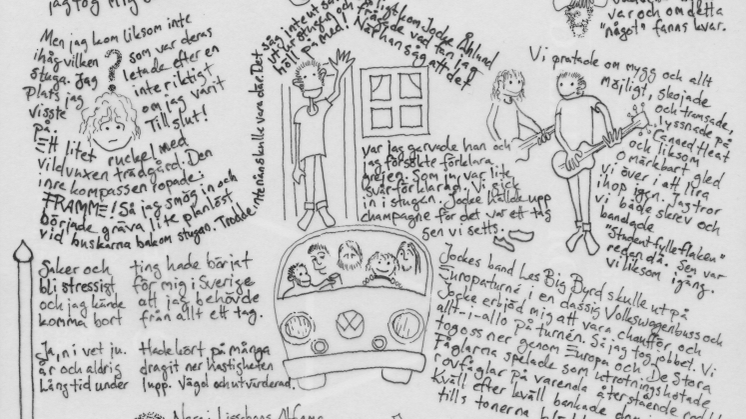 jag tog mig
Men jag kom liksom inte
ihåg vilken som var deras
stuga. Jag letade efter en
Plats jag inte riktigt
visste om jag varit
på. Till slut!
Ett litet ruckel med
vildvuxen trädgård. Den
inre kompassen ropade:
FRAMME! Så jag smög in och
började gräva lite planlöst
vid buskarna bakom stugan. Trodde
inte nån skulle vara där. Det
såg inte ut
ut ur stugan och
höll på med!
kom Jocke Åhlund
frågade vad fan jag
När han såg att det
var jag garvade han och
jag försökte förklara
grejen. Som ju var lite
svårförklarad. Vi gick
in i stugan. Jocke hällde upp
champagne för det var ett tag
sen vi setts.
var och om detta
"något" fanns kvar.
Vi pratade om mygg och allt
möjligt, skojade
och tramsade,
lyssnade på
Canned Heat
och liksom
omärkbart gled
vi över i att lira
ihop igen. Jag tror
vi både skrev och
bandade
"Studentfylleflaken"
redan då. Sen var
vi liksom igång.
Saker och ting hade börjat
bli stressigt för mig i Sverige
och jag kände att jag behövde
komma bort från allt ett tag.
Ja, ni vet ju. Hade kört på många
år och aldrig dragit ner hastigheten
Lång tid under lupp. Vägd och utvärderad.
Jockes band Les Big Byrd skulle ut på
Europaturné i en dassig Volkswagenbuss och
Jocke erbjöd mig att vara chaufför och
allt-i-allo på turnén. Så jag tog jobbet. Vi
tog oss ner genom Europa och De Stora
Fåglarna spelade som utrotningshotade
rovfåglar på varenda återstående
Kväll efter kväll bankade
tills tonerna